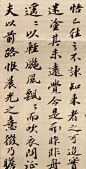 悟已往之不諫知來者之可追實
迷途其未遠覺今是而昨非舟
遙〻以輕颺風飄〻而吹衣問征
夫以前路恨晨光之熹微乃瞻